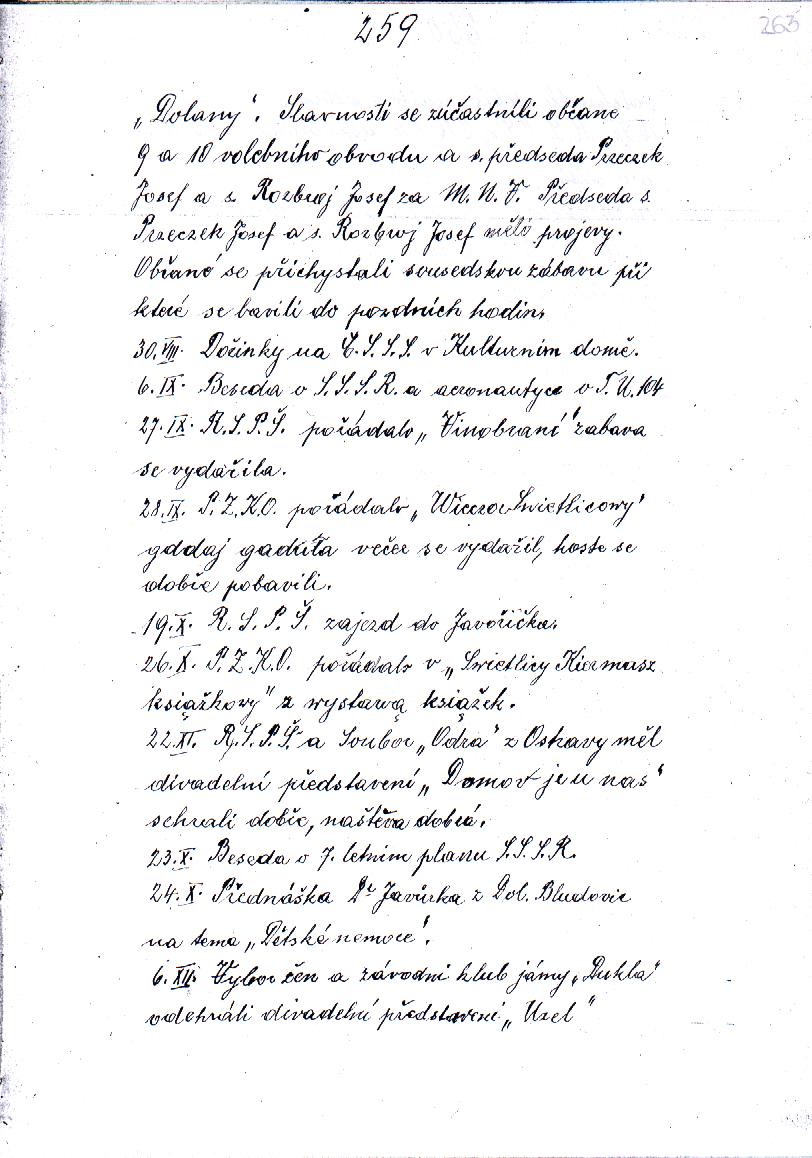 259
263
„Dolany". Slavnosti se zúčastnili občane
9 a 10 volebního obvodu a s. předseda Przeczek
Josef a s. Rozbroj Josef za M. N. V. Předseda s.
Przeczek Josef a s. Rozbroj Josef měli projevy.
Občané se přichystali sousedskou zábavu při
které se bavili do pozdních hodin.
30. VIII. Dočinky na Č.S.S.S. v Kulturním domě.
6. IX. Beseda o S.S.S.R. a aeronautyce o T.U. 104
27. IX. R.S.P.Š. pořádalo „Vinobraní" zabava
se vydařila.
28. IX. P.Z.K.O. pořádalo „Wieczor Swietlicowy"
gddaj gaduła večer se vydařil, hoste se
dobře pobavili.
19. X. R.S.P.Š. zajezd do Javořička.
26. X. P.Z.K.O. pořádalo v „Swietlicy Kiermasz
książkowy" z wystawą książek.
22. XI. R.S.P.Š. a Soubor „Odra" z Ostravy měl
divadelní představení „Domov je u nas"
sehrali dobře, naštěva dobrá.
23. X. Beseda o 7. letním planu S.S.S.R.
24. X. Přednáška Dr Javůrka z Dol. Bludovic
na tema „Dětské nemoce".
6. XII. Vybor žen a závodní klub jámy „Dukla"
odehráli divadelní představení „Uzel"